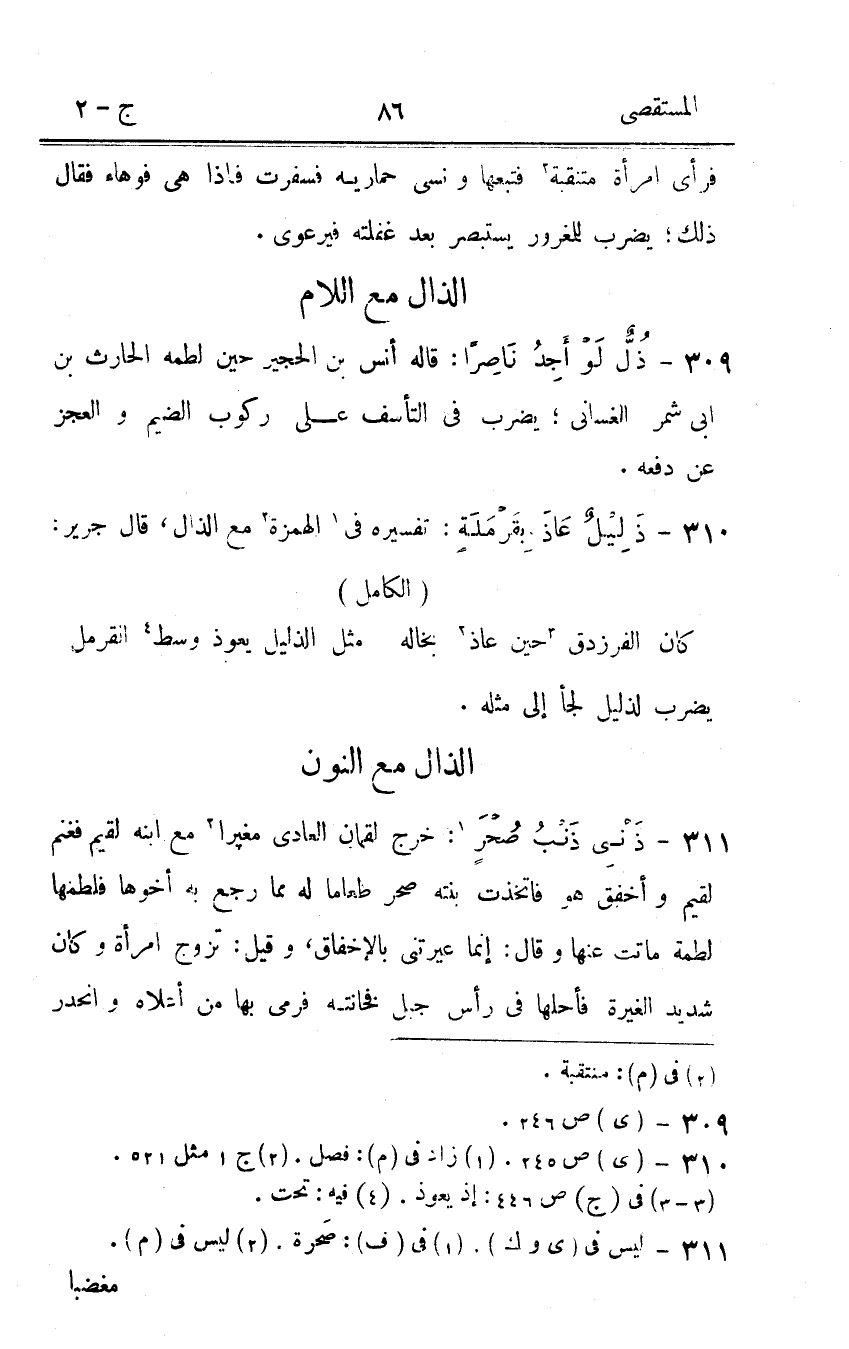 المستقصى ٨٦ ج - ٢
فرأى امرأة متنقبة٢ فتبعها و نسى حماريه فسفرت فاذا هى فوهاء فقال
ذلك؛ يضرب للغرور يستبصر بعد غفلته فيرعوى .
الذال مع اللام
٣٠٩ - ذُلٌّ لَوْ أَجِدُ نَاصِرًا: قاله أنس بن الحجير حين لطمه الحارث بن
ابى شمر الغسانى ؛ يضرب فى التأسف على ركوب الضيم و العجز
عن دفعه .
٣١٠ - ذَلِيْلٌ عَاذَ بِقَرْمَلَةٍ : تفسيره فى١ الهمزة٢ مع الذال، قال جرير:
( الكامل )
كان الفرزدق ٣حين عاذ٣ بخاله مثل الذليل يعوذ وسط٤ القرمل
يضرب لذليل لجأ إلى مثله .
الذال مع النون
٣١١ - ذَنْبِى ذَنْبُ صُحْرَ١: خرج لقمان العادى مغيرا٢ مع ابنه لقيم فغنم
لقيم و أخفق هو فاتخذت بنته صحر طعاما له مما رجع به أخوها فلطمها
لطمة ماتت عنها و قال: إنما عيرتنى بالإخفاق، و قيل: تزوج امرأة و كان
شديد الغيرة فأحلها فى رأس جبل فخانته فرمى بها من أعلاه و انحدر
(٢) فى (م): منتقبة .
٣٠٩ - ( ى ) ص ٢٤٦ .
٣١٠ - ( ى ) ص ٢٤٥ . (١) زاد فى (م): فصل . (٢) ج ١ مثل ٥٢١ .
(٣-٣) فى ( ج) ص ٤٤٦: إذ يعوذ . (٤) فيه: تحت .
٣١١ - ليس فى ( ى و ك ) . (١) فى ( ف): صَحرة . (٢) ليس فى ( م ) .
مغضبا